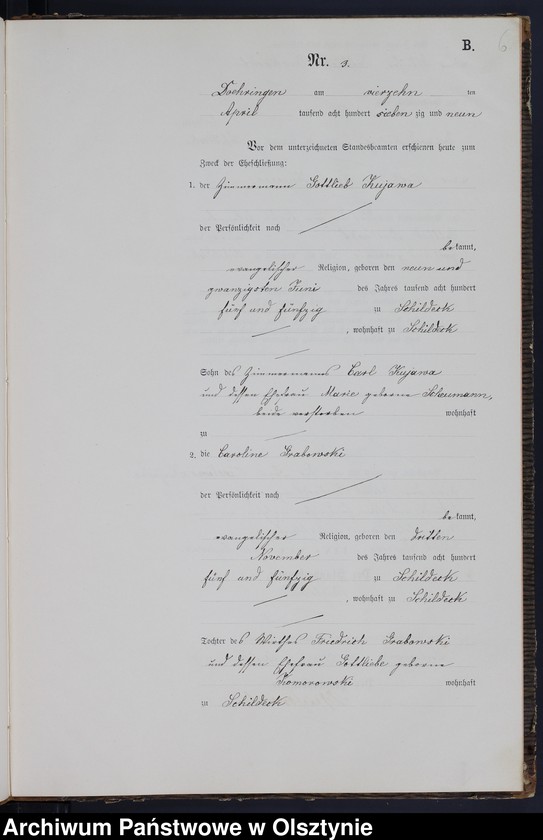 B.
6
Nr. 3.
Doehringen am vierzehn ten
April tausend acht hundert sieben zig und neun
Vor dem unterzeichneten Standesbeamten erschienen heute zum
Zweck der Eheschließung:
1. der Zimmermann Gottlieb Kujawa
der Persönlichkeit nach
be kannt,
evangelischer Religion, geboren den neun und
zwanzigsten Juni des Jahres tausend acht hundert
fünf und fünfzig zu Schildeck
, wohnhaft zu Schildeck
Sohn des Zimmermanns Carl Kujawa
und dessen Ehefrau Marie geborne Scheumann,
beide verstorben wohnhaft
zu
2. die Caroline Grabowski
der Persönlichkeit nach
be kannt,
evangelischer Religion, geboren den dritten
November des Jahres tausend acht hundert
fünf und fünfzig zu Schildeck
, wohnhaft zu Schildeck
Tochter des Wirthes Friedrich Grabowski
und dessen Ehefrau Gottliebe geborne
Komorowski wohnhaft
zu Schildeck
Archiwum Państwowe w Olsztynie